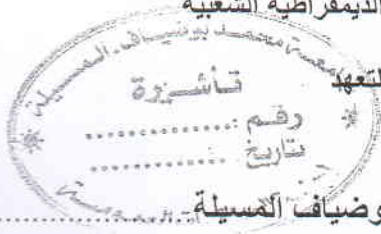 الديمقراطية الشعبية
جامعة محمد بوضياف - المسيلة
التعهد
تأشيرة
رقم :..............
تاريخ ..............
وضياف المسيلة..............